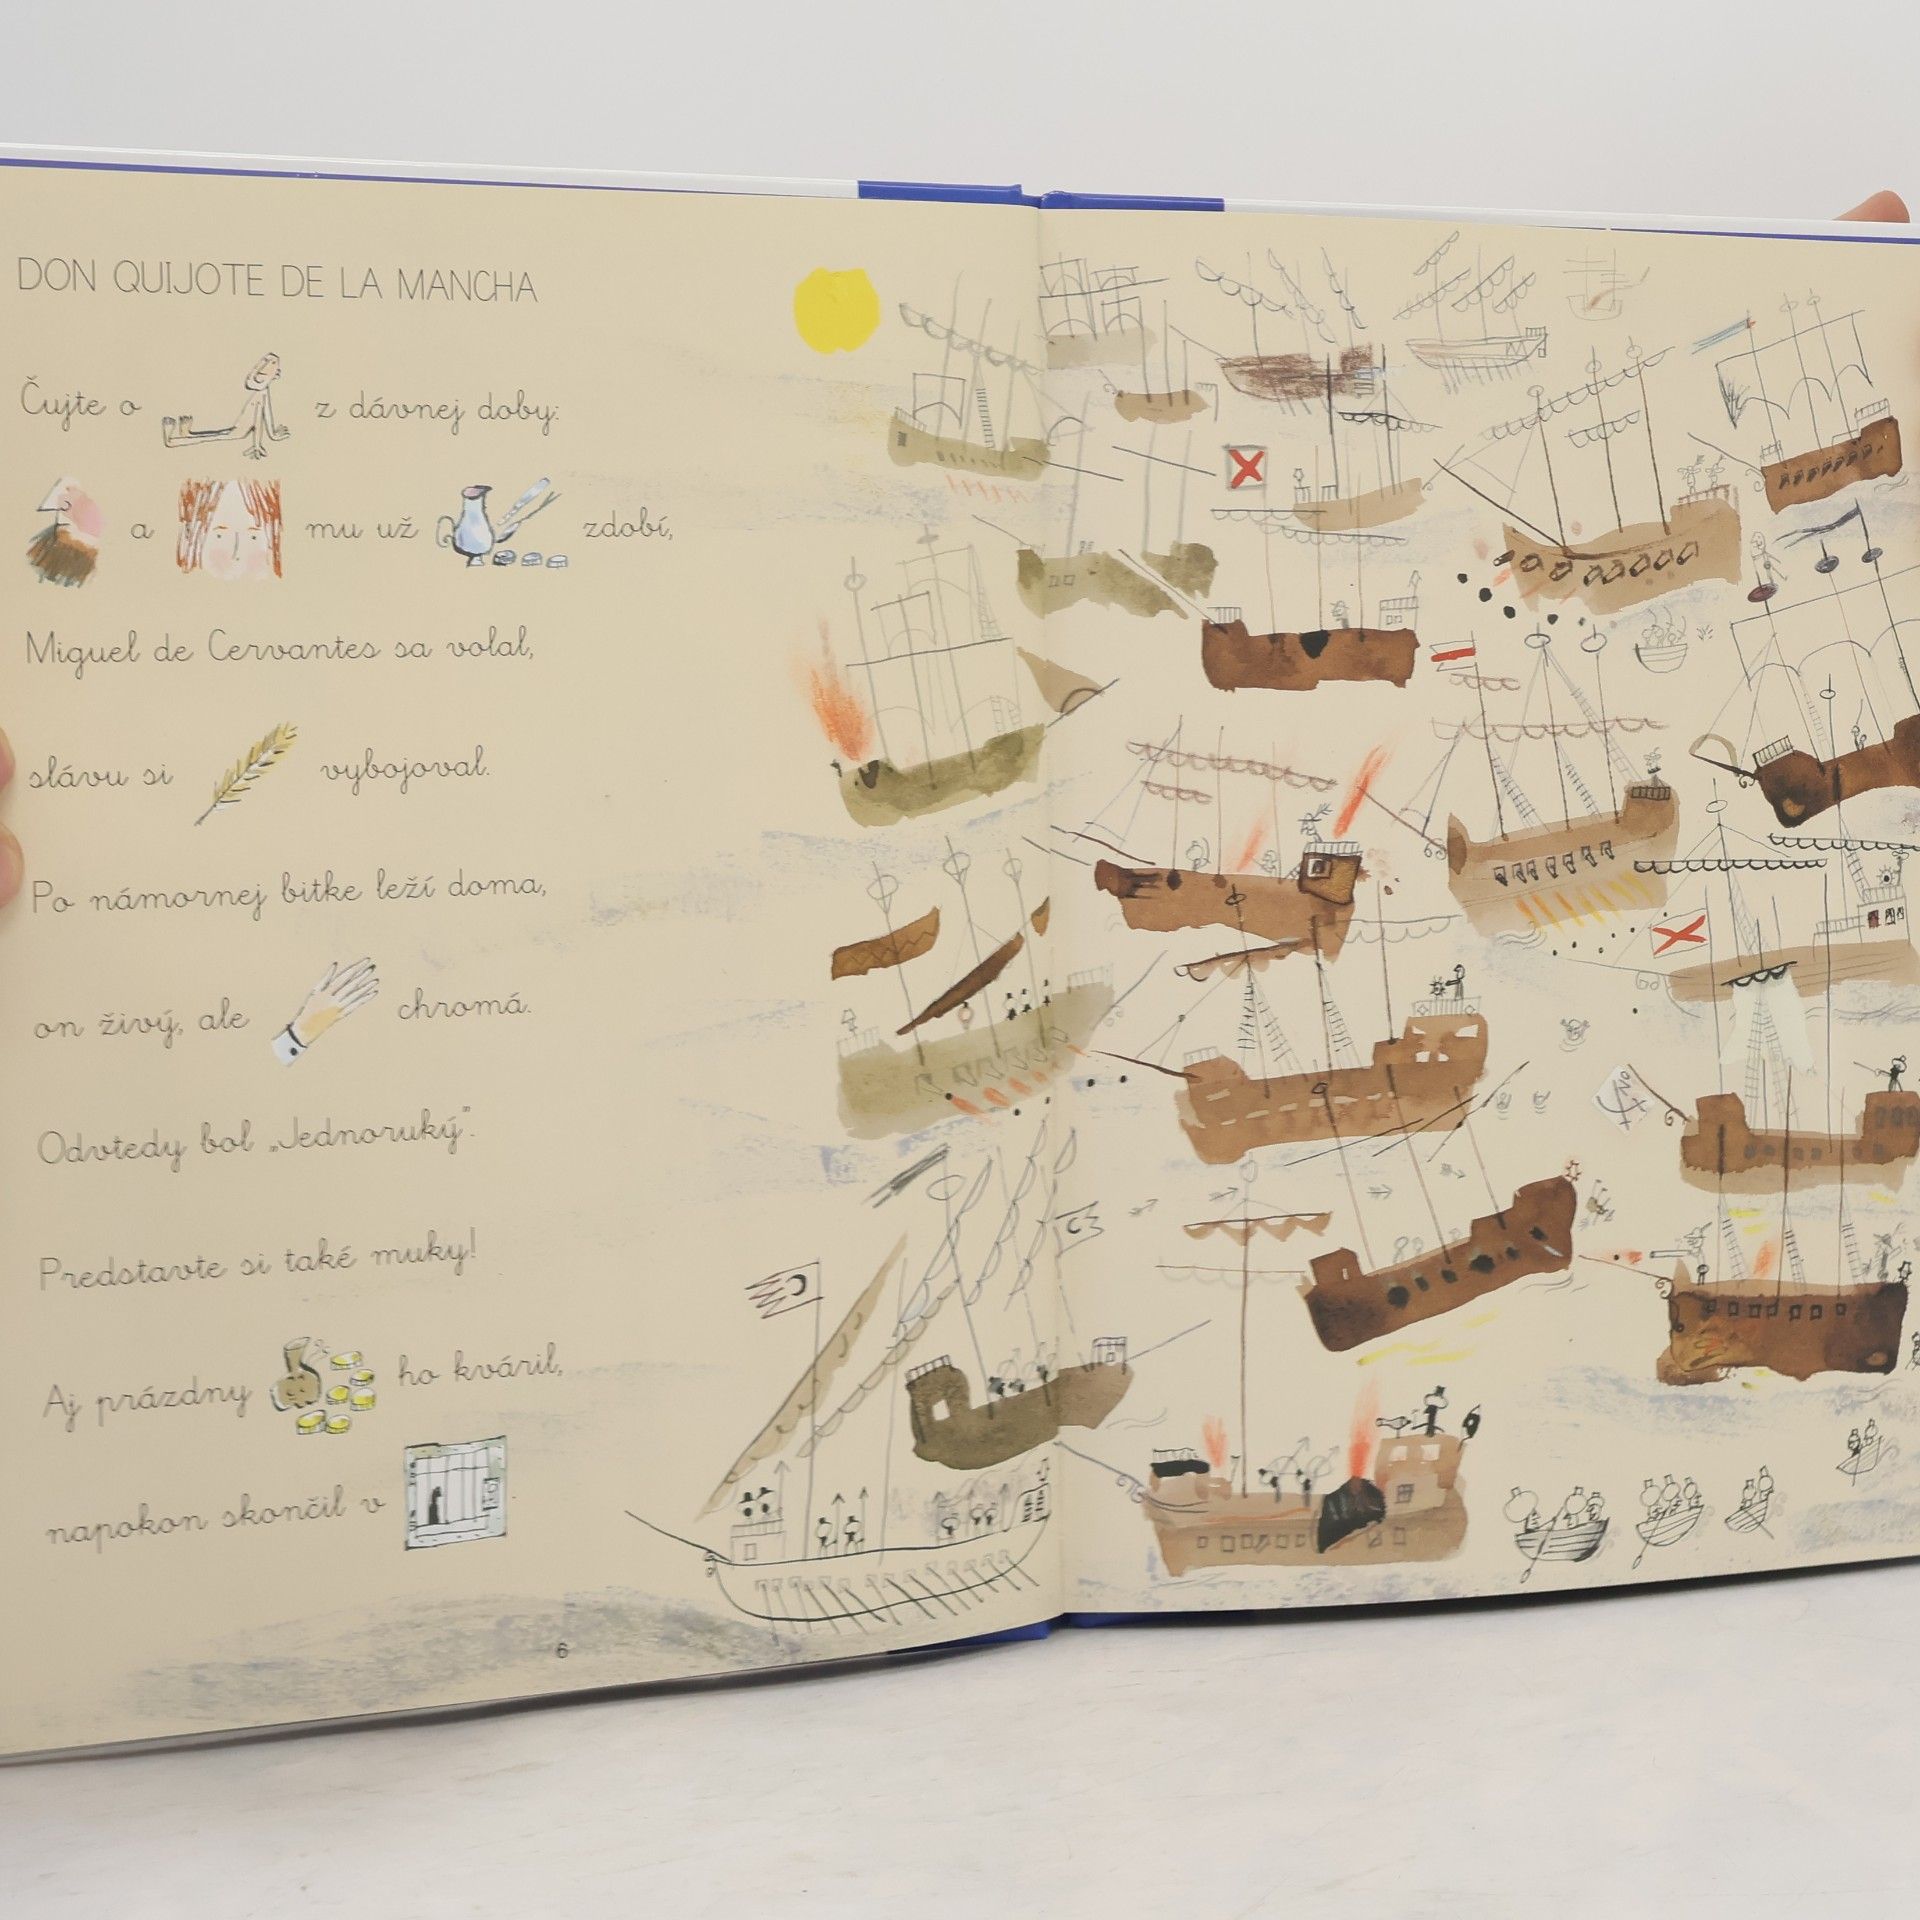 DON QUIJOTE DE LA MANCHA
Čujte o z dávnej doby:
a mu už zdobí,
Miguel de Cervantes sa volal,
slávu si vybojoval.
Po námornej bitke leží doma,
on živý, ale chromá.
Odvtedy bol „Jednoruký“.
Predstavte si také muky!
Aj prázdny ho kváril,
napokon skončil v
6